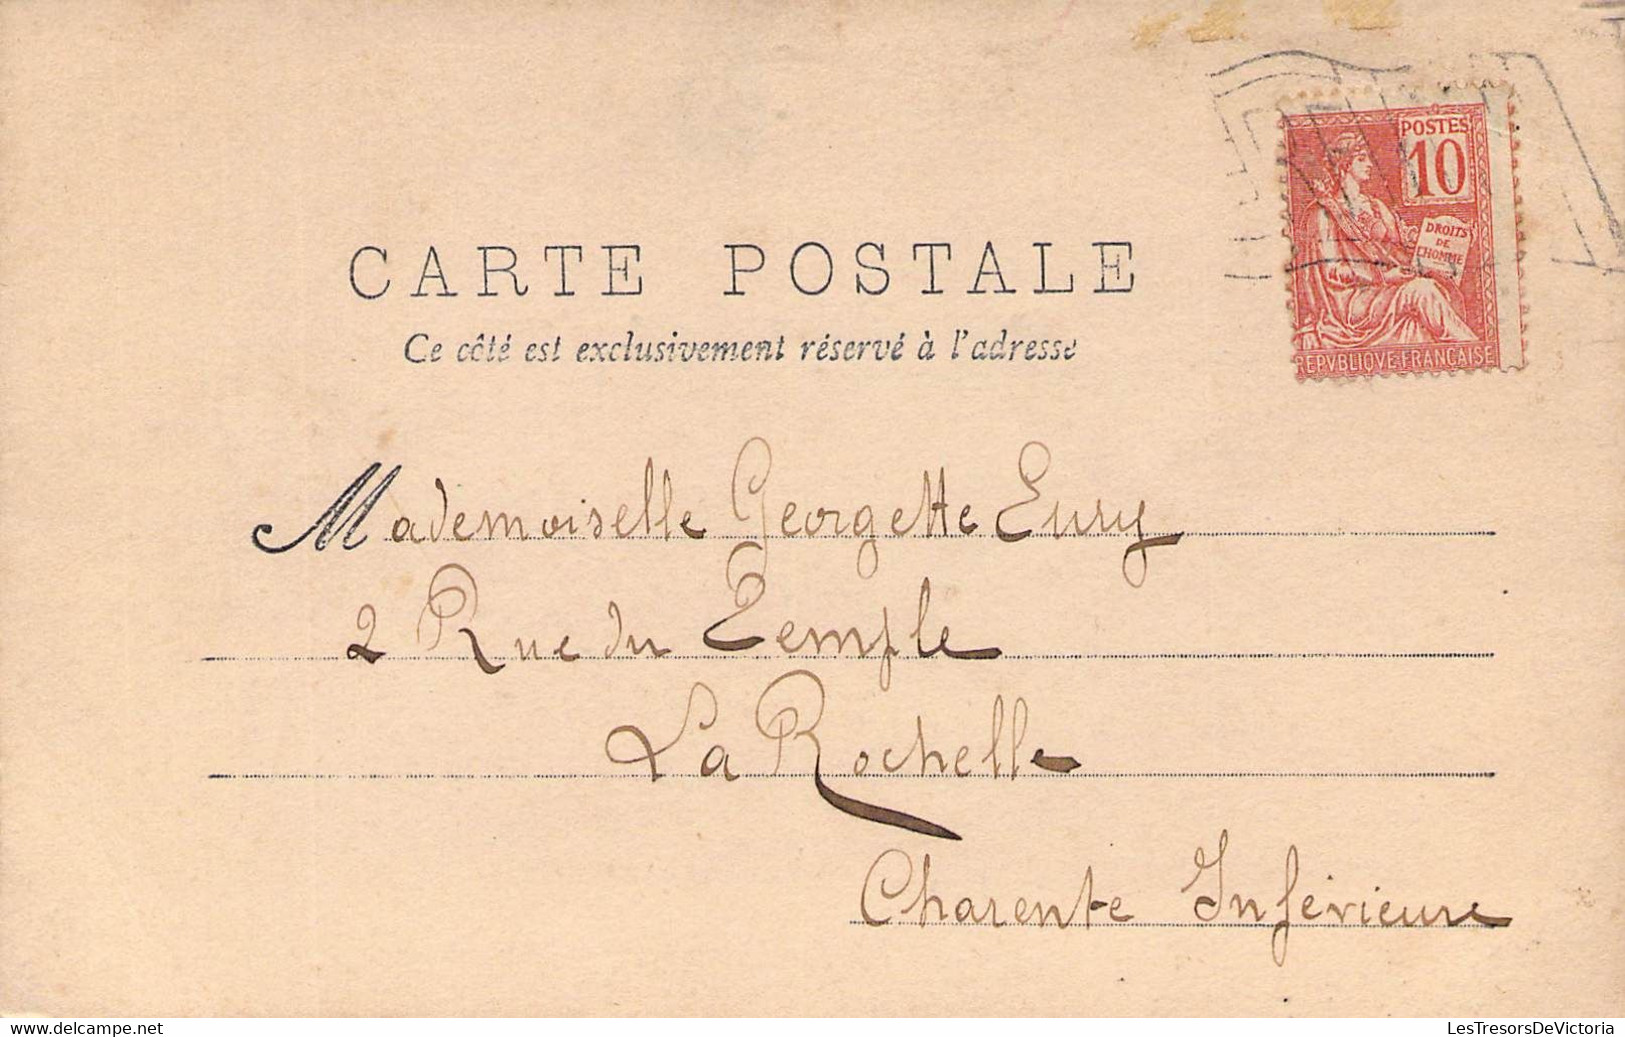 POSTES
10
DROITS
DE
L'HOMME
REPVBLIQVE FRANÇAISE
CARTE POSTALE
Ce côté est exclusivement réservé à l'adresse
Mademoiselle Georgette Eury
2 Rue du Temple
La Rochelle
Charente Inférieure
Delcampe.net
LesTresorsDeVictoria